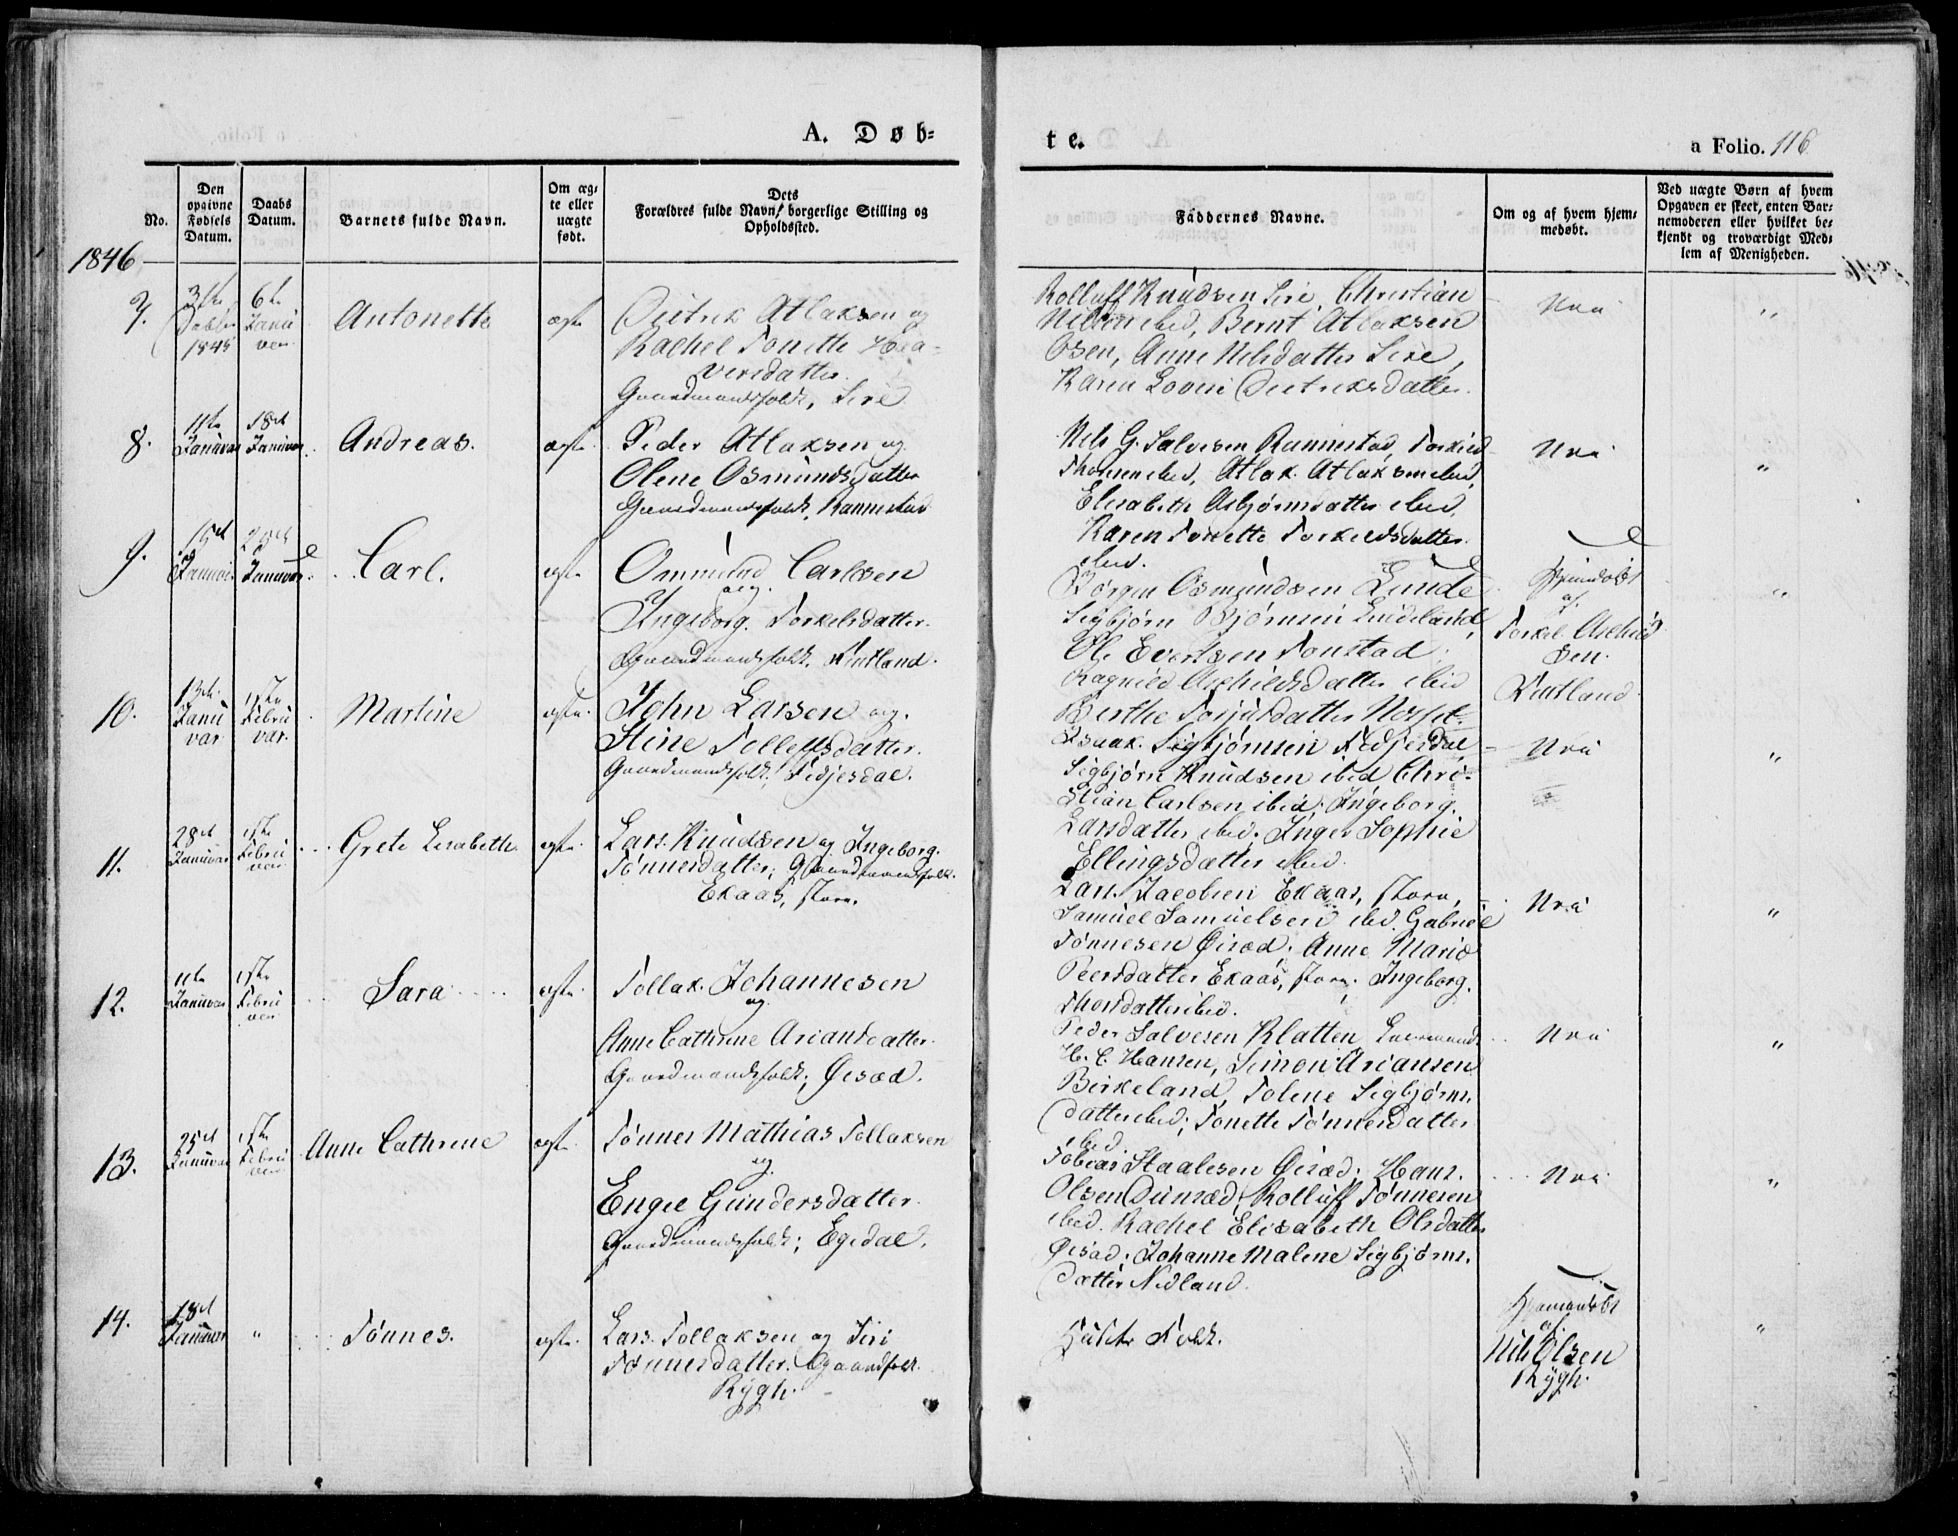 A. Døb=
te.
a Folio. 116
No.
Den opgivne Fødsels Datum.
Daabs Datum.
Barnets fulde Navn.
Om æg= te eller uægte født.
Dets
Forældres fulde Navn, borgerlige Stilling og
Opholdssted.
Faddernes Navne.
Om og af hvem hjem= medøbt.
Ved uægte Børn af hvem
Opgaven er skeet, enten Bar=
nemoderen eller hvilket be=
kjendt og troværdigt Med=
lem af Menigheden.
1846
7.
1845
6te Janu
var
Antonette
ægte
Atlaksen og
Rachel Tonette
versdatter.
Gaardmandsfolk, Sire
Rolluff Knudsen Sire, Christian
Nilsen ibid, Bernt Atlaksen
Osen, Anne Nilsdatter Sire,
Karen Lovise Dietriksdatter.
Nei
"
8.
11te
Januvar
18de
Januvar
Andreas.
ægte
Peder Atlaksen og
Olene Osmundsdatter
Gaardmandsfolk, Rannestad
Nils G. Salvesen Rannestad,
ibid, Atlak Atlaksen ibid,
Elisabeth Asbjørnsdatter ibid,
Karen Tonette Torkeldsdatter
ibid.
Nei
"
9.
15de
Januvar
Januvar
Carl.
ægte
Ommund Carlsen
og
Ingeborg Torkelsdatter.
Gaardmandsfolk.
Børge Osmundsen Lunde
Sigbjørn Bjørnsen
Ole Evertsen Tonstad
Ragnild Aschildsdatter ibid
Berthe
Hjemdøbt
af
Torkel
sen.
"
10.
13de
Janu
var
1ste
Febru
var.
Martine
ægte
John Larsen og
Stine Tolleffsdatter.
Gaardmandsfolk, Fidjesdal.
Isaak Sigbjørnsen Fidjesdal
Sigbjørn Knudsen ibid Chri=
stian Carlsen ibid. Ingeborg
Larsdatter ibid. Inger Sophie
Ellingsdatter ibid.
Nei
"
11.
28de
Januvar
1ste
Febru
var
Grete Lisabeth
ægte
Lars Knudsen og Ingeborg
Tønnesdatter, Gaardmandsfolk.
Ekaas, store.
Lars Jacobsen Ekaas, store,
Samuel Samuelsen ibid. Gabriel
Tønnesen Øisæd. Anne Marie
Peersdatter Ekaas, store. Ingeborg
Thorsdatter ibid.
Nei
"
12.
11te
Januvar
1ste
Febru
var
Sara
ægte
Tollak Johannesen
og
Anne Cathrine Ariansdatter
Gaardmandsfolk, Øisæd.
Peder Salvesen Klatten,
H. C. Hansen, Simon Ariansen
Birkeland, Tolene Sigbjørns
datter ibid, Tonette Tønnesdatter
ibid.
Nei
"
13.
25de
Januvar
1ste
Febru
var
Anne Cathrine
ægte
Tønnes Mathias Tollaksen
og
Engel Gundersdatter
Gaardmandsfolk; Egedal.
Tobias Staalesen Øisæd. Hans
Olsen Dunsæd, Rolluff Tønnesen
ibid. Rachel Elisabeth Olsdatter
Øisæd. Johanne Malene Sigbjørns
datter Nedland.
Nei
"
14.
18de
Januvar
"
Tønnes.
ægte
Lars Tollaksen og Siri
Tønnesdatter. Gaardfolk.
Rygh.
Folk.
Hjemmedøbt
af
Nils Olsen
Rygh.
"